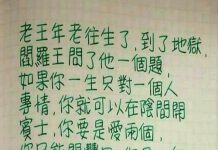 老王年老往生了,到了地獄,
閻羅王問了他一個題,
如果你一生只對一個人
事情,你就可以在陰間開
賓士,你要是愛兩個,